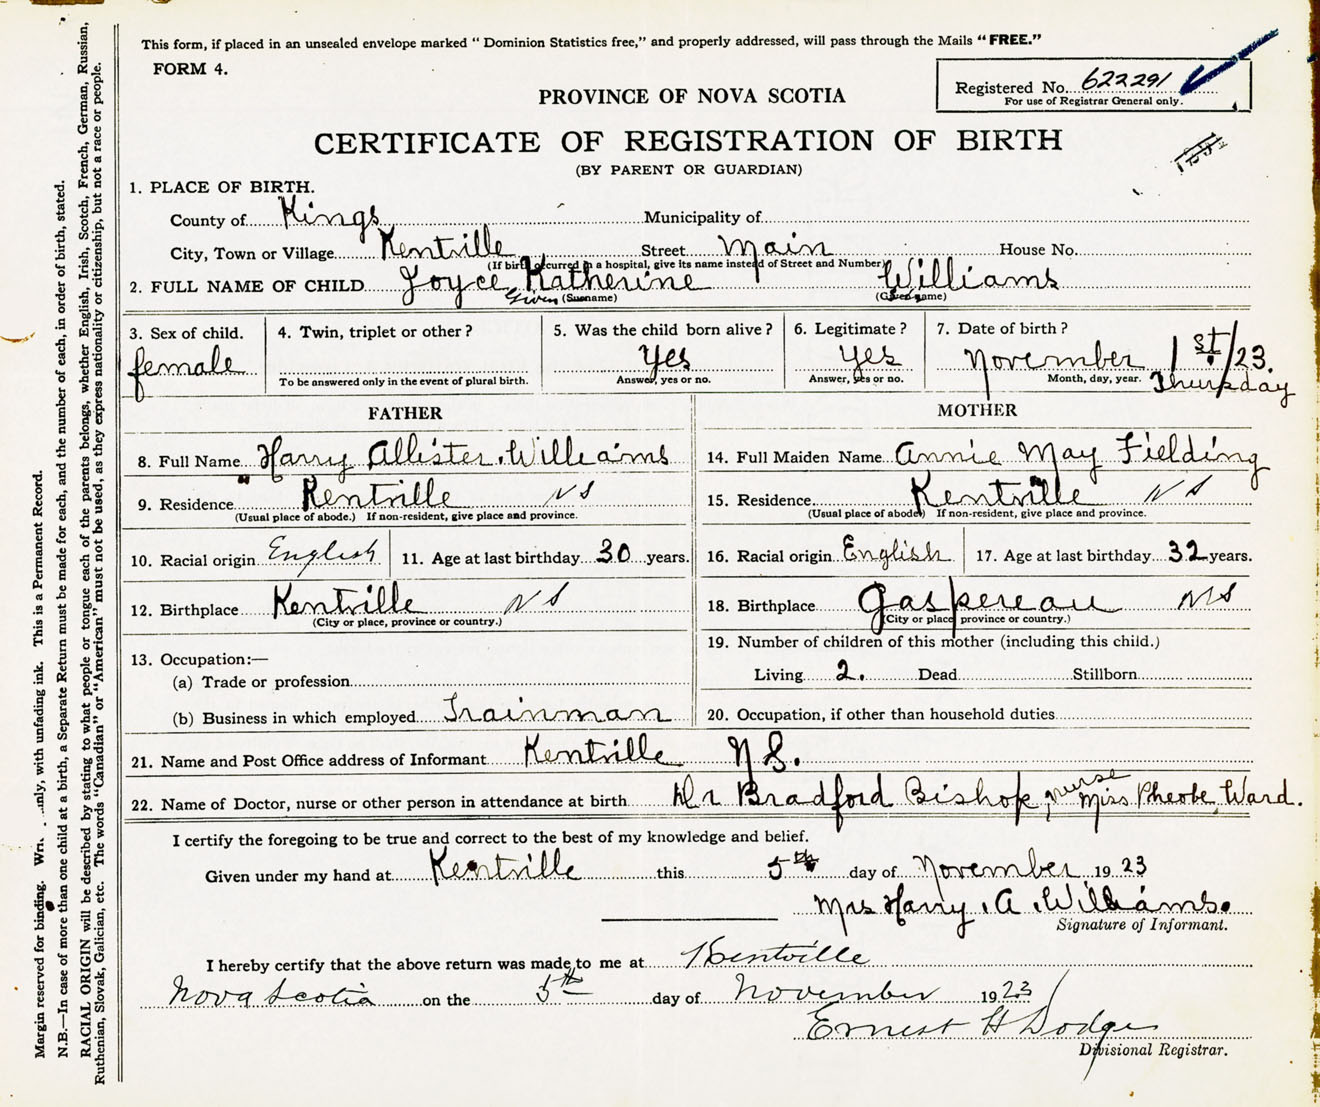 This form, if placed in an unsealed envelope marked " Dominion Statistics free," and properly addressed, will pass through the Mails "FREE."
FORM 4.
Registered No. 622291
For use of Registrar General only.
PROVINCE OF NOVA SCOTIA
CERTIFICATE OF REGISTRATION OF BIRTH
(BY PARENT OR GUARDIAN)
1. PLACE OF BIRTH.
County of Kings Municipality of
City, Town or Village Kentville Street Main House No.
(If birth occurred in a hospital, give its name instead of Street and Number)
2. FULL NAME OF CHILD Joyce Katherine Williams
Given (Surname) (Given name)
3. Sex of child. 4. Twin, triplet or other? 5. Was the child born alive? 6. Legitimate? 7. Date of birth?
female Yes Yes November 1st/23.
To be answered only in the event of plural birth. Answer, yes or no. Answer, yes or no. Month, day, year. Thursday
FATHER MOTHER
8. Full Name Harry Allister Williams 14. Full Maiden Name Annie May Fielding
9. Residence Kentville NS 15. Residence Kentville NS
(Usual place of abode.) If non-resident, give place and province. (Usual place of abode) If non-resident, give place and province.
10. Racial origin English 11. Age at last birthday 30 years. 16. Racial origin English 17. Age at last birthday 32 years.
12. Birthplace Kentville NS 18. Birthplace Gaspereau NS
(City or place, province or country.) (City or place province or country.)
13. Occupation:— 19. Number of children of this mother (including this child.)
(a) Trade or profession Living 2. Dead Stillborn
(b) Business in which employed Trainman 20. Occupation, if other than household duties
21. Name and Post Office address of Informant Kentville N S.
22. Name of Doctor, nurse or other person in attendance at birth Dr Bradford Bishop, nurse Miss Pheobe Ward.
I certify the foregoing to be true and correct to the best of my knowledge and belief.
Given under my hand at Kentville this 5th day of November 1923
Mrs Harry A Williams.
Signature of Informant.
I hereby certify that the above return was made to me at Kentville
Nova Scotia on the 5th day of November 1923
Ernest H Dodge
Divisional Registrar.
Margin reserved for binding. Wri. nly, with unfading ink. This is a Permanent Record.
N.B.—In case of more than one child at a birth, a Separate Return must be made for each, and the number of each, in order of birth, stated.
RACIAL ORIGIN will be described by stating to what people or tongue each of the parents belongs, whether English, Irish, Scotch, French, German, Russian,
Ruthenian, Slovak, Galician, etc. The words "Canadian" or "American" must not be used, as they express nationality or citizenship, but not a race or people.